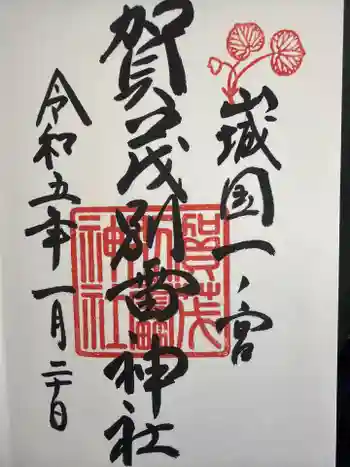 山城国一ノ宮
賀茂別雷神社
令和五年一月二十日
賀茂別雷神社